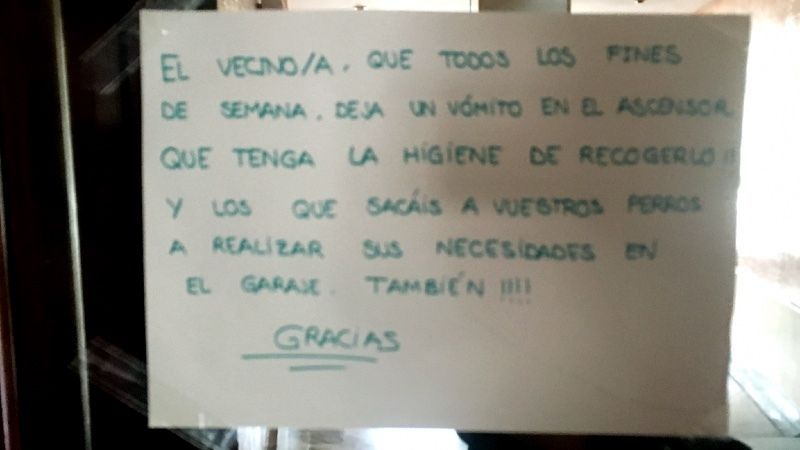 EL VECINO/A, QUE TODOS LOS FINES
DE SEMANA, DEJA UN VÓMITO EN EL ASCENSOR
QUE TENGA LA HIGIENE DE RECOGERLO!!
Y LOS QUE SACÁIS A VUESTROS PERROS
A REALIZAR SUS NECESIDADES EN
EL GARAJE. TAMBIÉN !!!!
GRACIAS